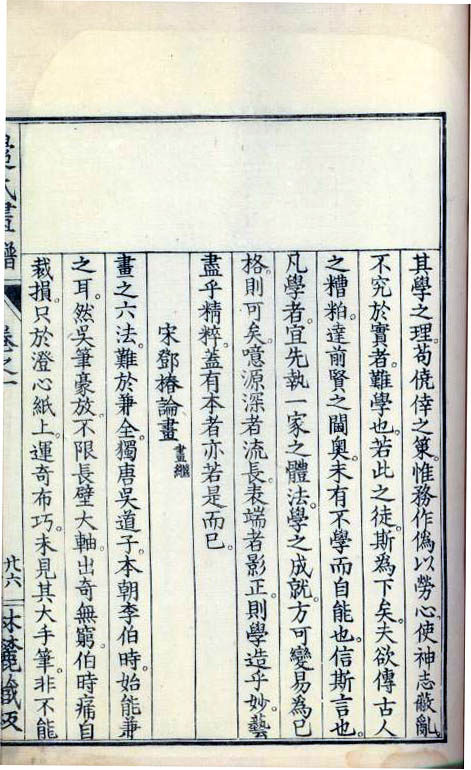 其學之理。苟僥倖之策。惟務作偽以勞心。使神志蔽亂。
不究於實者。難學也。若此之徒。斯為下矣。夫欲傳古人
之糟粕。達前賢之閫奧。未有不學而自能也。信斯言也。
凡學者。宜先執一家之體法。學之成就。方可變易為已
格。則可矣。噫。源深者流長。表端者影正。則學造乎妙。藝
盡乎精粹。蓋有本者亦若是而已。
宋鄧椿論畫 畫繼
畫之六法。難於兼全。獨唐吳道子。本朝李伯時。始能兼
之耳。然吳筆豪放。不限長壁大軸。出奇無窮。伯時痛自
裁損。只於澄心紙上。運奇布巧。未見其大手筆。非不能
氏畫譜 卷之一 廿六